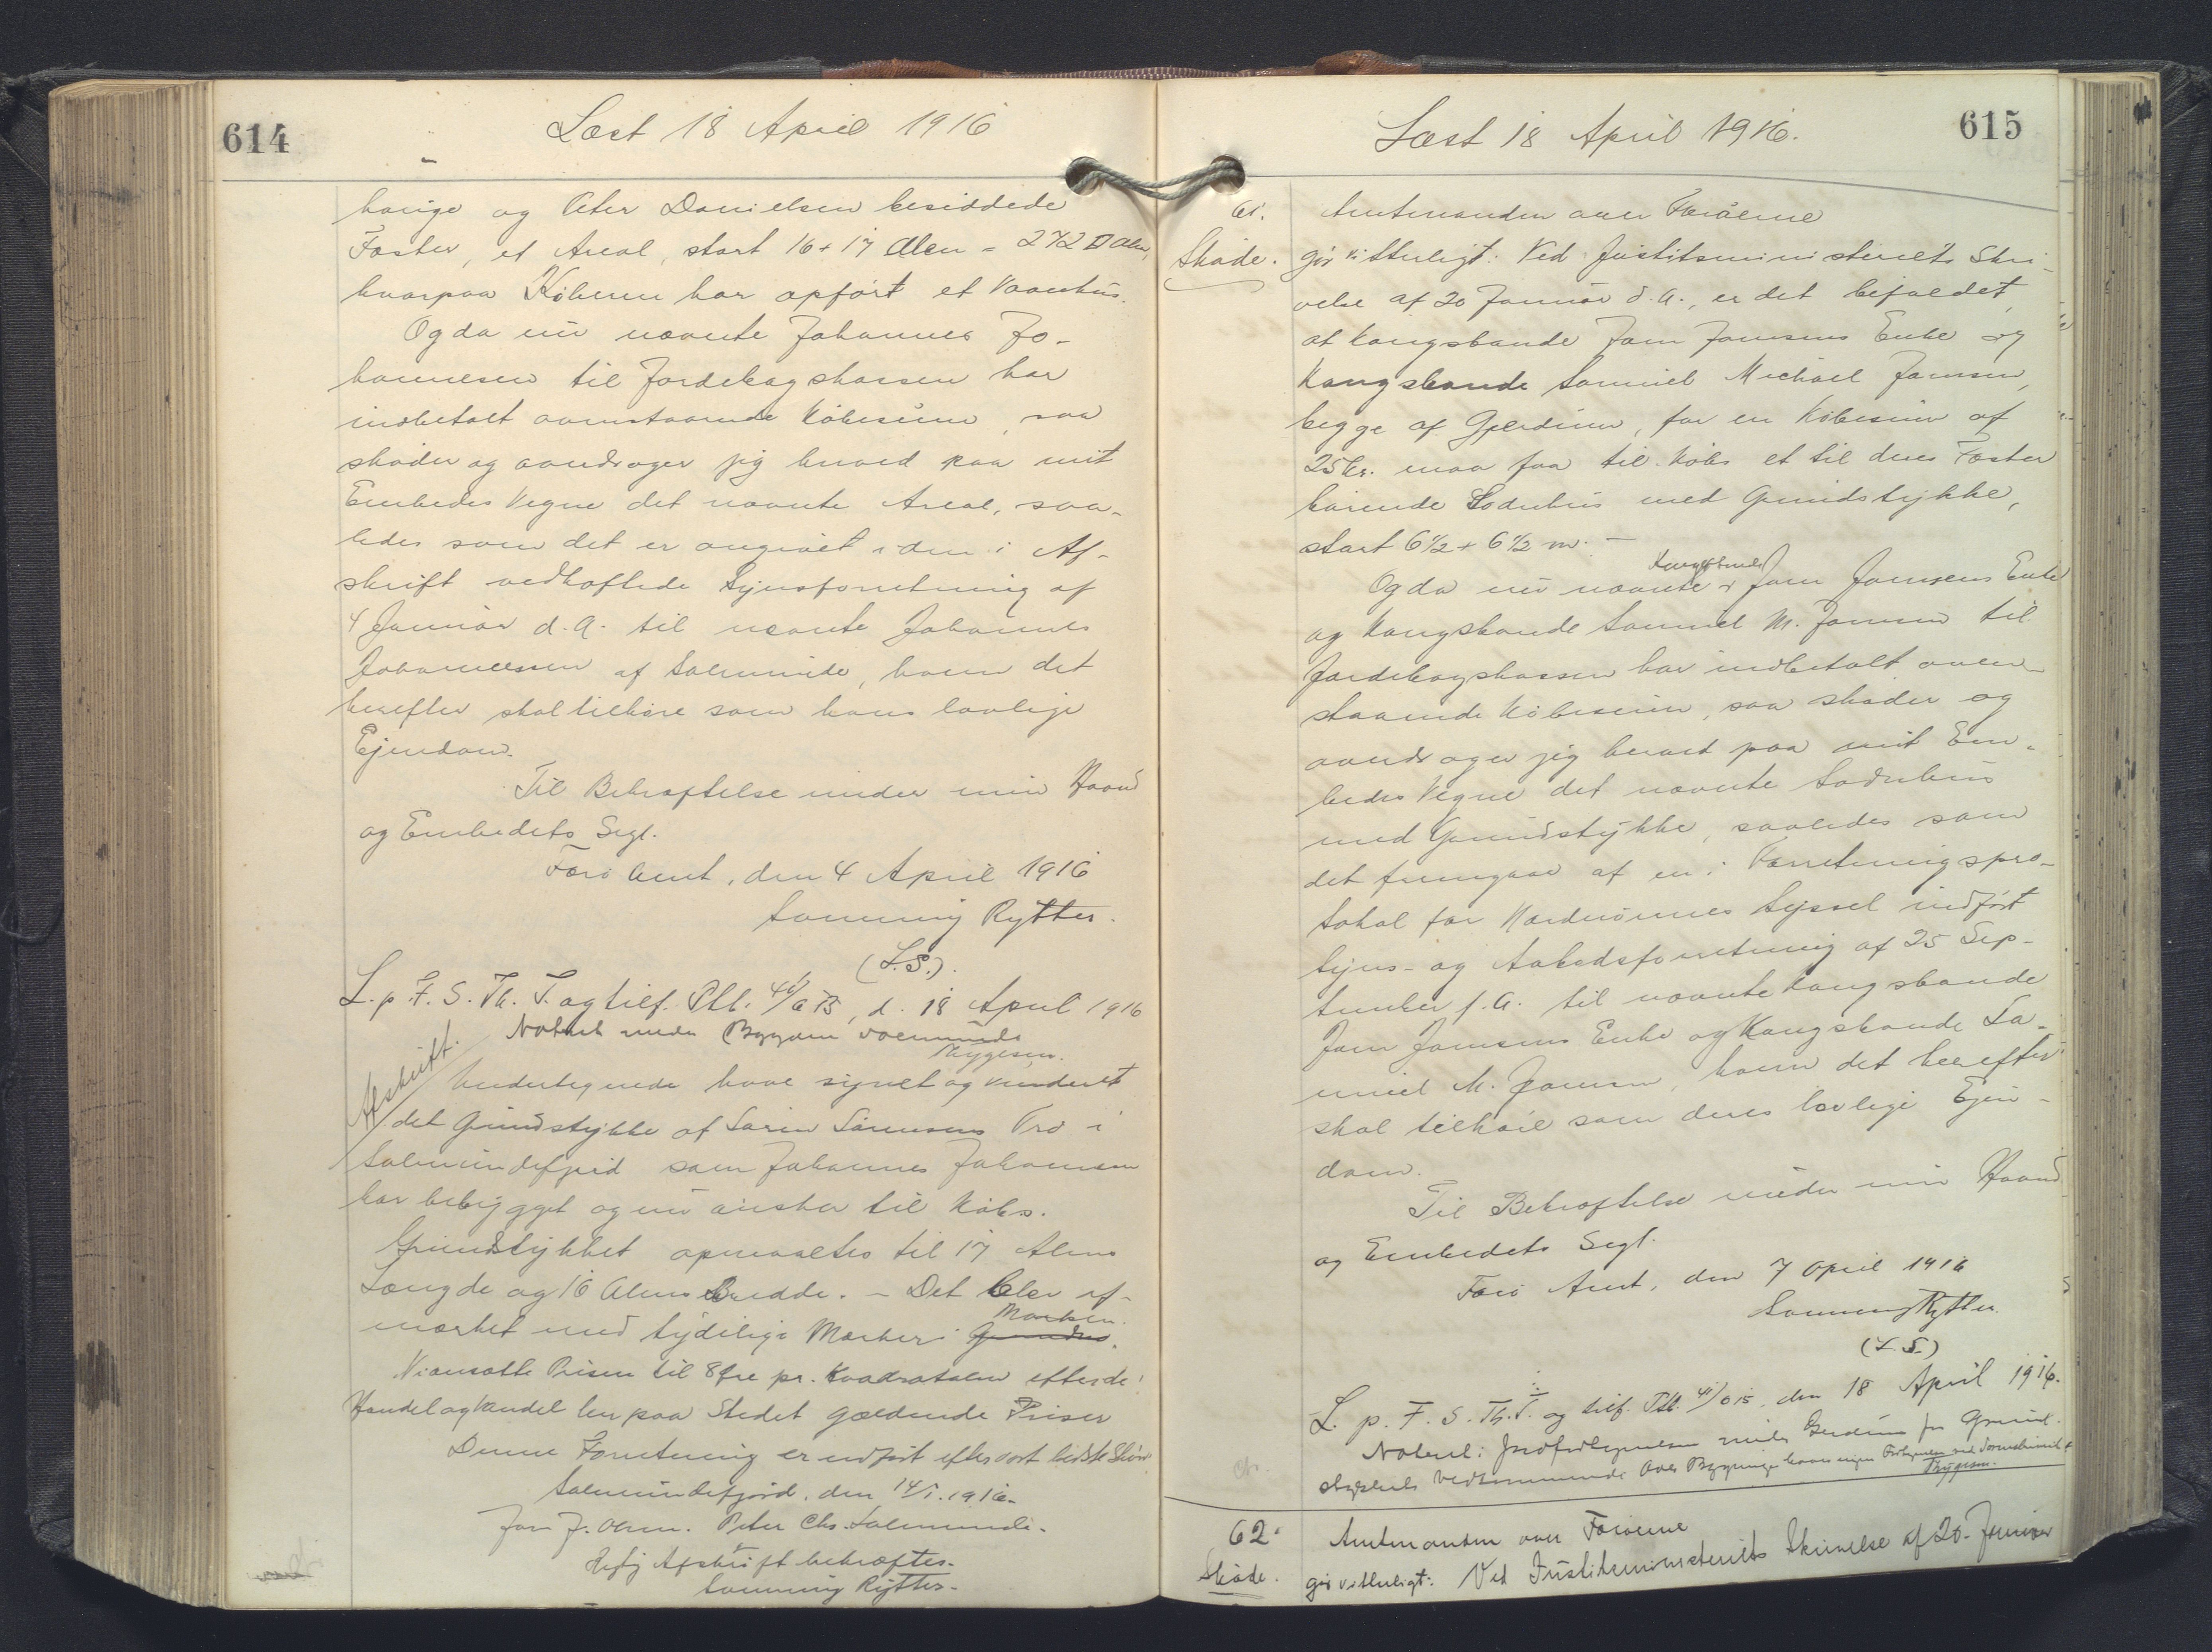 614
Læst 18 April 1916
havige og Peter Danielsen besiddede
Fæster, et Areal, stort 16 + 17 Alen = 272 □ Alen,
hvorpaa Køberen har opført et Vaanhus.
Og da nu nævnte Johannes Jo-
hannesen til Jordebogskassen har
indbetalt ovenstaaende Købesum, saa
skøder og overdrager jeg herved paa mit
Embedes Vegne det nævnte Areal, saa-
ledes som det er angivet i den i Af-
skrift vedhæftede Synsforretning af
4 Januar d. A. til nævnte Johannes
Johannessen af Salmunde, hvem det
herefter skal tilhøre som hans lovlige
Ejendom.
Til Bekræftelse under min Haand
og Embedets Segl.
Færø Amt, den 4 April 1916
Sonnning Rytter.
(L.S.).
L. p. F. S. Th. T. og tilf. Ptk. d. 18 April 1916
Noteret under
Thygesen.
Afskrift.
Undertegnede have synet og vurderet
det Grundstykke af Sørin Sørensens Tro i
Salmundefjord som Johannes Johannesen
har bebygget og nu ønsker til Købs.
Grundstykket opmaaltes til 17 Alens
Længde og 16 Alens Bredde. – Det blev af-
mærket med tydelige Mærker i Grunden. Marken.
Vi ansatte Prisen til 8 Øre pr. Kvadratalen efter de i
Handel og Vandel her paa Stedet gældende Priser
Denne Forretning er udført efter vort bedste Skøn
Salmundefjord, den 14/1. 1916.
Joen J. Olsen. Peter Chr. Salmunde.
Rigtig Afskrift bekræftes.
Sonnning Rytter.
615
Læst 18 April 1916.
61.
Skøde.
Amtmanden over Færøerne
gør vitterligt: Ved Justitsministeriets Skri-
velse af 20 Januar d. A., er det befalet,
at Kongsbonde Joen Joensens Enke og
Kongsbonde Samuel Michael Joensen,
begge af Gjerdum, for en Købesum af
25 Kr. maa faa til Købs et til deres Fæster
hørende Sodnhus med Grundstykke,
stort 6½ + 6½ m. –
Og da nu nævnte Kongsbonde Joen Joensens Enke
og Kongsbonde Samuel M. Joensen til
Jordebogskassen har indbetalt oven-
staaende Købesum, saa skøder og
overdrager jeg herved paa mit Em-
bedes Vegne det nævnte Sodnhus
med Grundstykke, saaledes som
det fremgaar af en i Forretningspro-
tokol for Norderøernes Syssel indført
Syns- og Aabodsforretning af 25 Sep-
tember f. A. til nævnte Kongsbonde
Joen Joensens Enke og Kongsbonde Sa-
muel M. Joensen, hvem det herefter
skal tilhøre som deres lovlige Ejen-
dom.
Til Bekræftelse under min Haand
og Embedets Segl.
Færø Amt, den 7 April 1916
Sonnning Rytter.
(L.S.)
L. p. F. S. Th. T. og tilf. Ptk. den 18 April 1916.
Noteret i under Gerdum for Grund-
stykkets Vedkommende
Thygesen.
62.
Skøde.
Amtmanden over Færøerne
gør vitterligt: Ved Justitsministeriets Skrivelse af 20. Januar